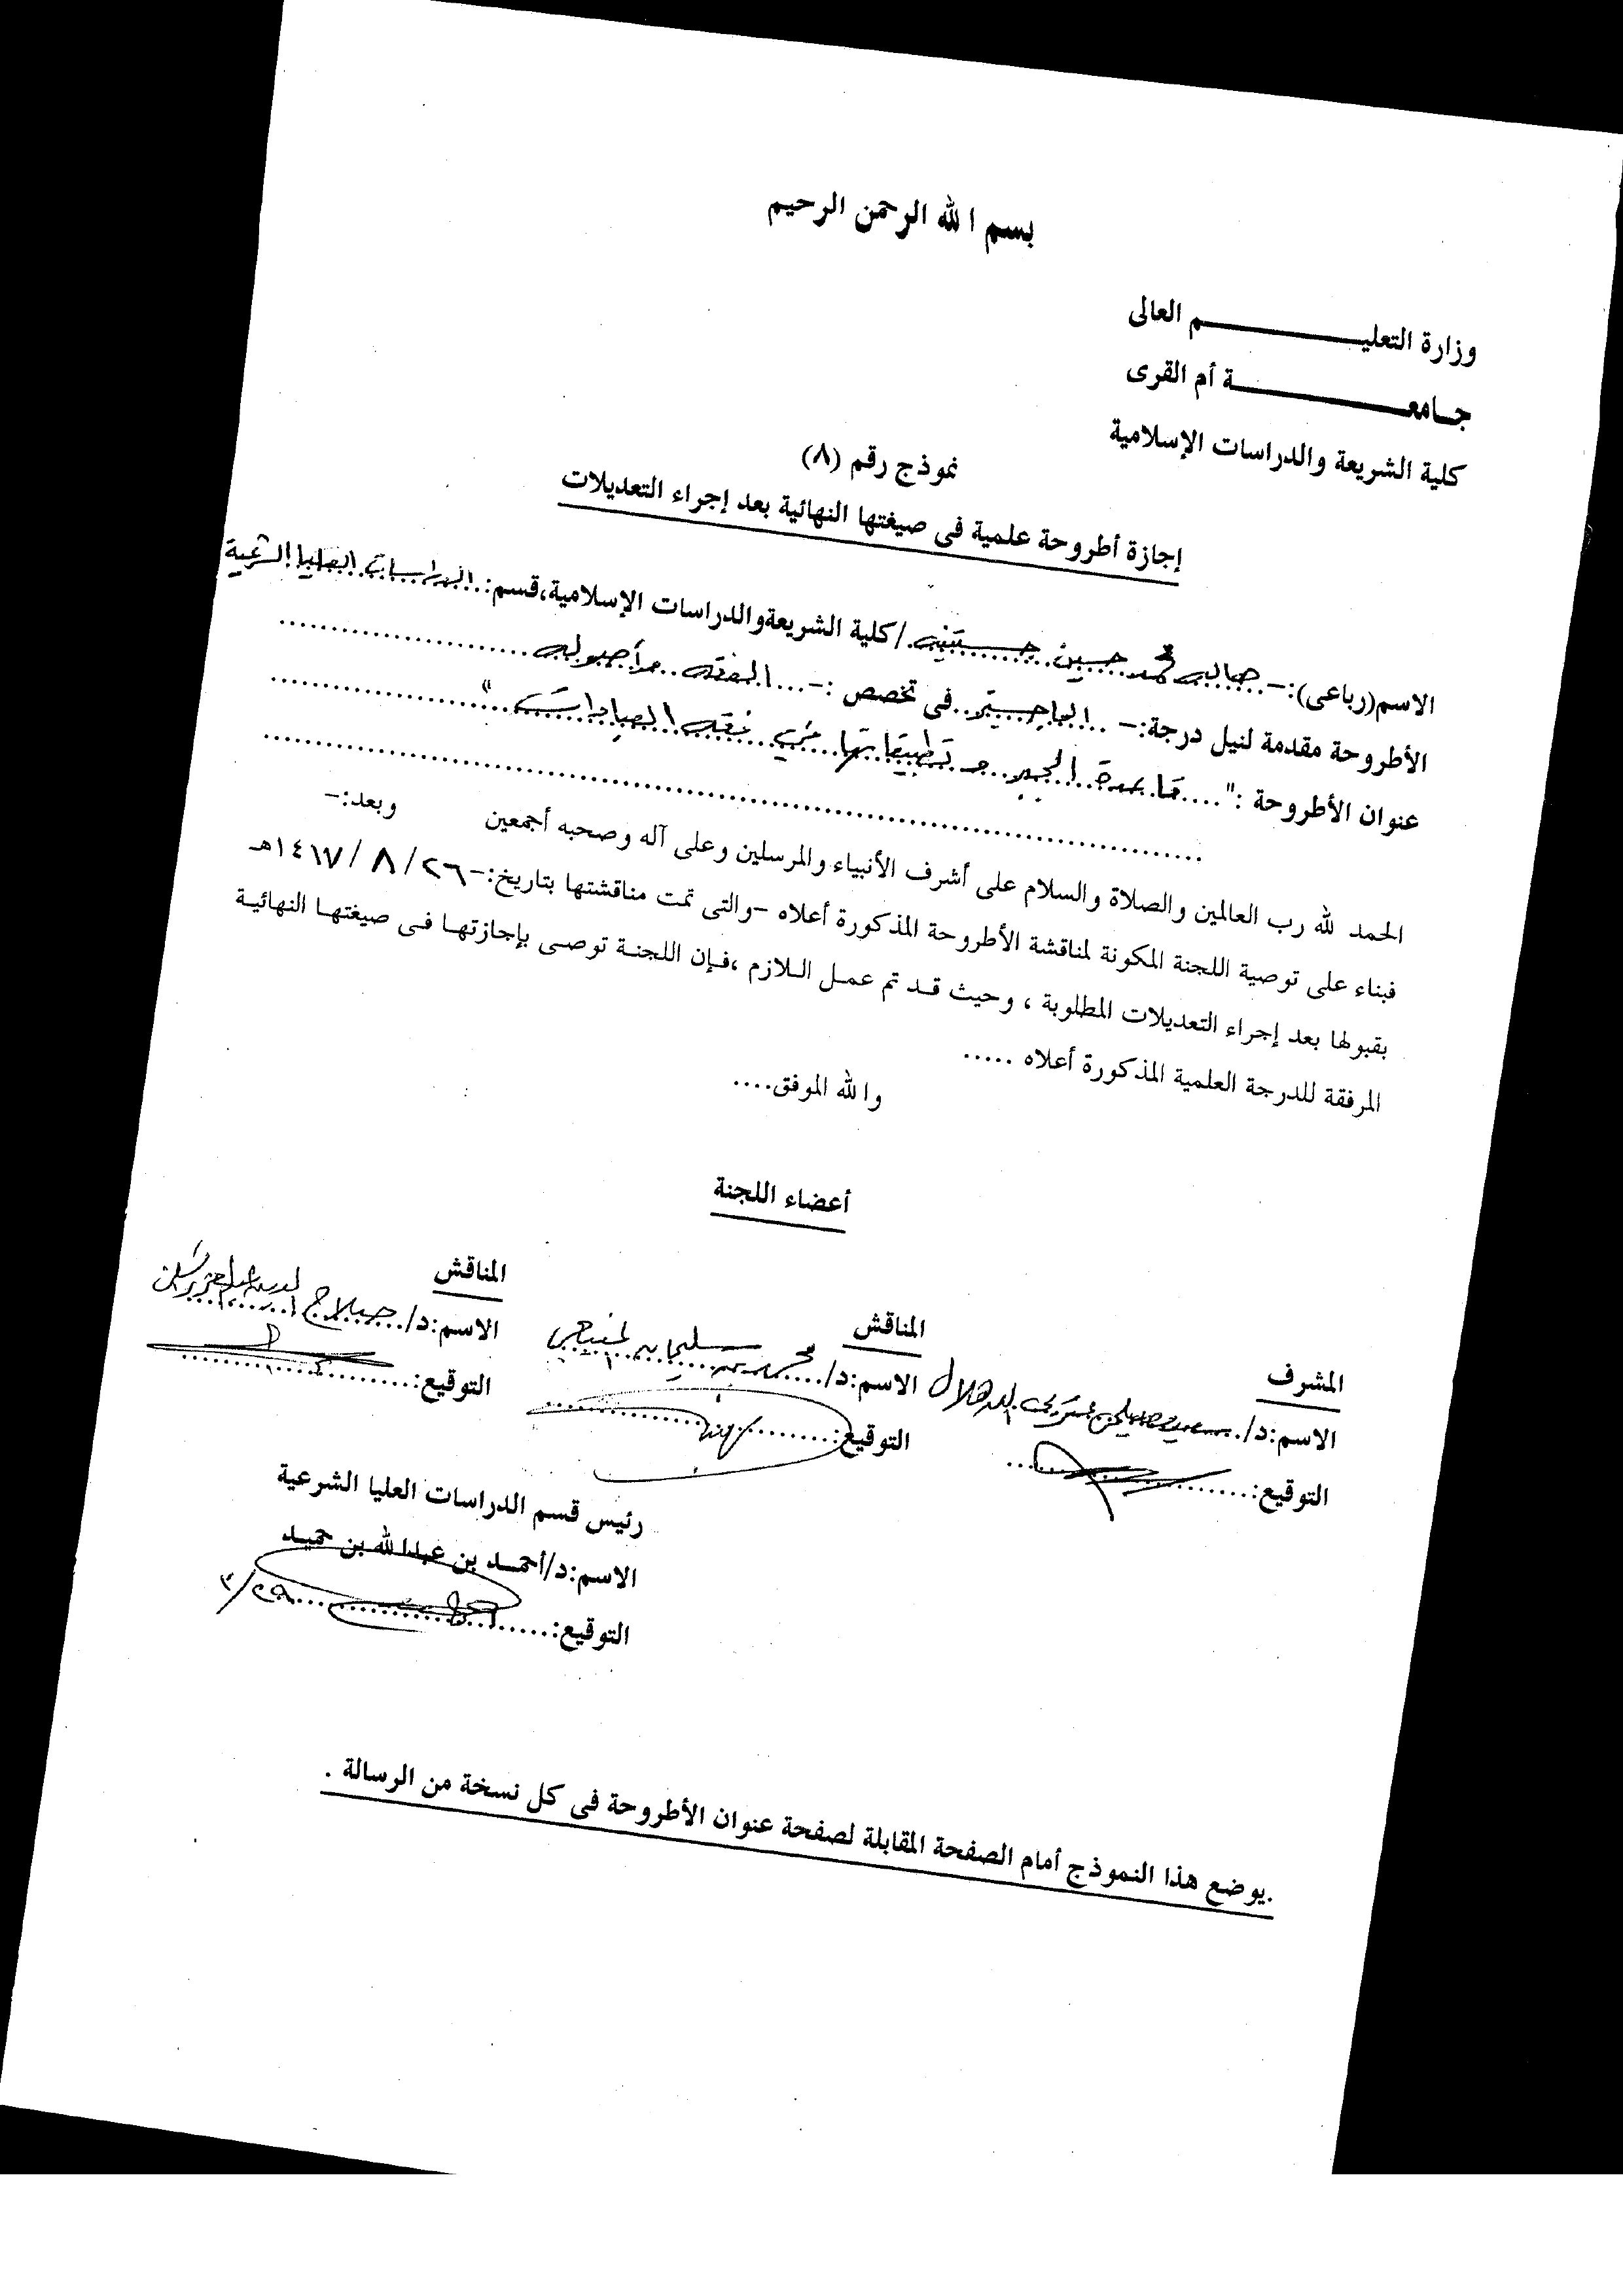 بسم الله الرحمن الرحيم
وزارة التعليم العالى
جامعة أم القرى
كلية الشريعة والدراسات الإسلامية
نموذج رقم (٨)
إجازة أطروحة علمية فى صيغتها النهائية بعد إجراء التعديلات
الاسم(رباعى):- ... محمد حسين ... /كلية الشريعة والدراسات الإسلامية،قسم: الدراسات العليا الشرعية
الأطروحة مقدمة لنيل درجة:- الماجستير فى تخصص :- الفقه وأصوله
عنوان الأطروحة :" قاعدة الجبر وتطبيقاتها في فقه العبادات "
الحمد لله رب العالمين والصلاة والسلام على أشرف الأنبياء والمرسلين وعلى آله وصحبه أجمعين وبعد:-
فبناء على توصية اللجنة المكونة لمناقشة الأطروحة المذكورة أعلاه -والتى تمت مناقشتها بتاريخ:- ٢٦/ ٨ /١٤١٧هـ
بقبولها بعد إجراء التعديلات المطلوبة ، وحيث قد تم عمل اللازم ،فإن اللجنة توصى بإجازتها فى صيغتها النهائية
المرفقة للدرجة العلمية المذكورة أعلاه .....
والله الموفق....
أعضاء اللجنة
المشرف
الاسم:د/
التوقيع:
المناقش
الاسم:د/ محمد بن سليمان المنيعي
التوقيع:
المناقش
الاسم:د/ صلاح
التوقيع:
رئيس قسم الدراسات العليا الشرعية
الاسم:د/أحمد بن عبدالله بن حميد
التوقيع: ٢٩/٣
.يوضع هذا النموذج أمام الصفحة المقابلة لصفحة عنوان الأطروحة فى كل نسخة من الرسالة .